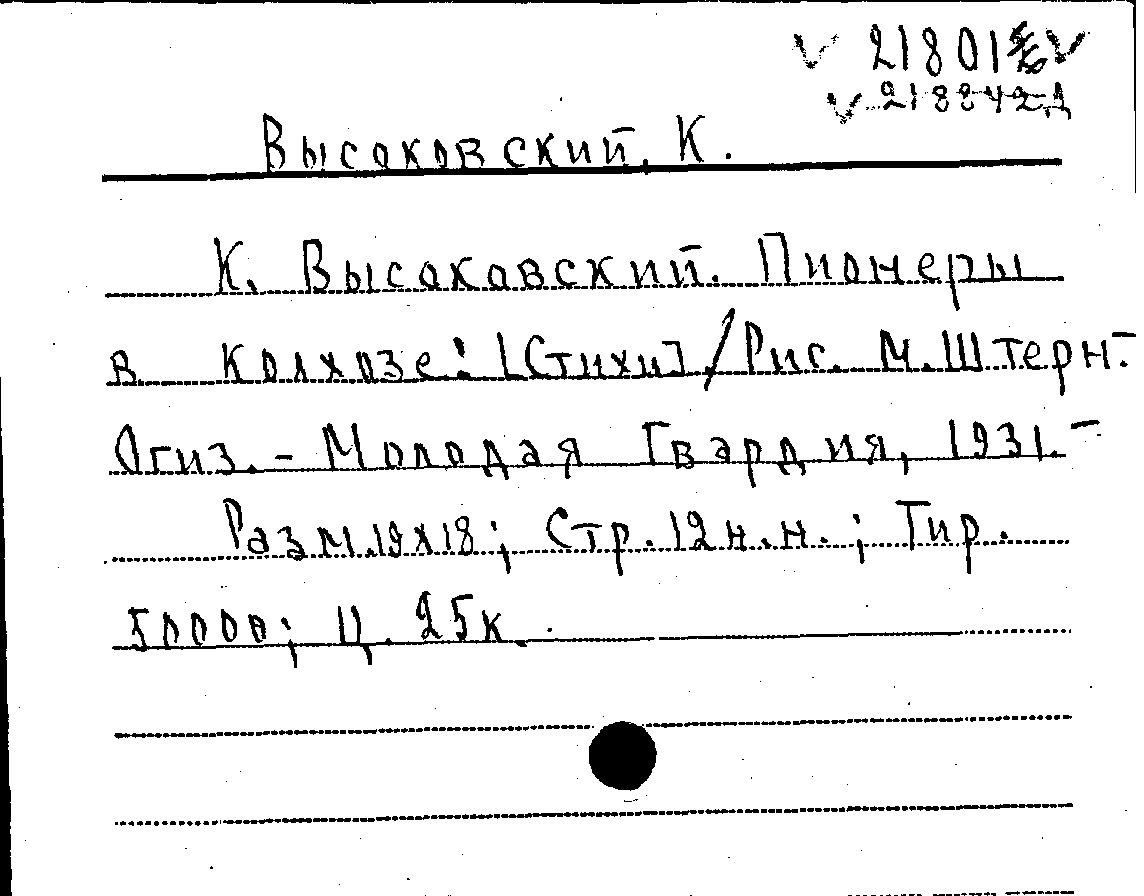 21801
218842Д
Высоковский, К.
К. Высоковский. Пионеры
в колхозе: [Стихи] / Рис. М. Штерн.-
Огиз. - Молодая Гвардия, 1931. -
Разм. 19х18; Стр. 12 н.н.; Тир.
50000; Ц. 25к.